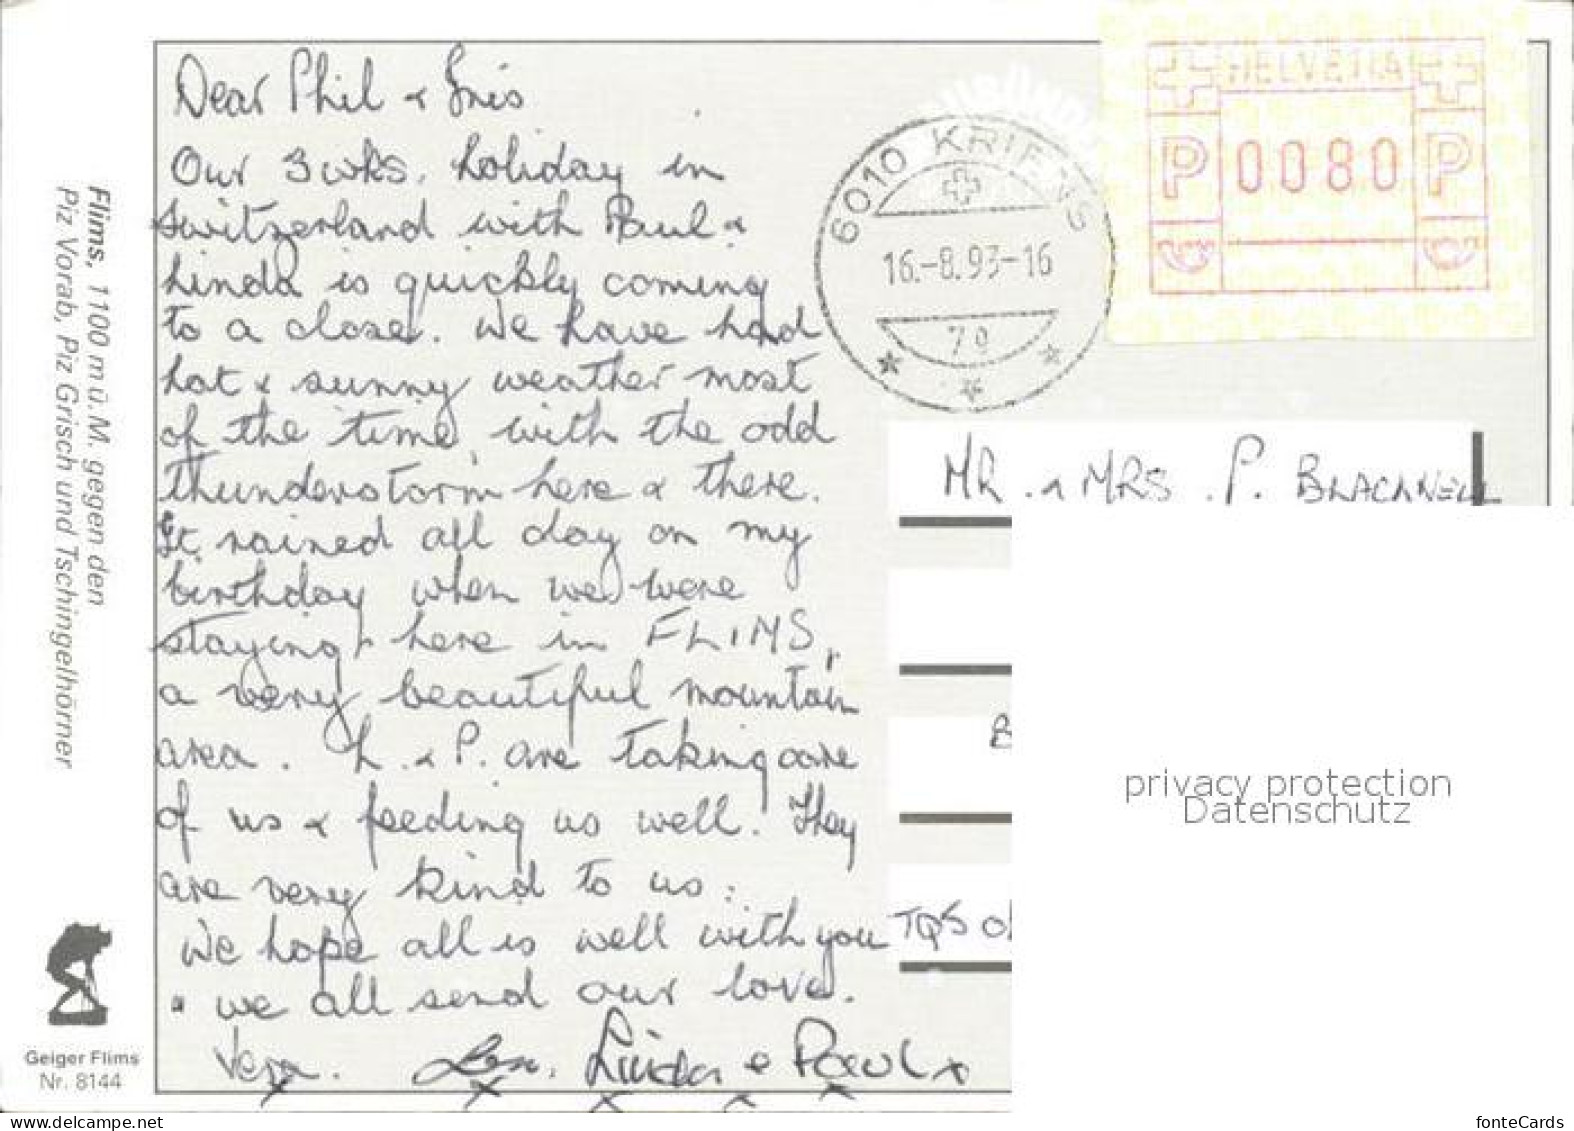 Dear Phil & Iris
Our 3 wks. holiday in
Switzerland with Paul &
Linda is quickly coming
to a close. We have had
hot & sunny weather most
of the time, with the odd
thunderstorm here & there.
It rained all day on my
birthday when we were
staying here in FLIMS,
a very beautiful mountain
area. L. & P. are taking care
of us & feeding us well. They
are very kind to us.
We hope all is well with you
& we all send our love.
Vera. Len. Linda & Paul x
x x x x x
6010 KRIENS
16.-8.93-16
79
HELVETIA
P 0080 P
MR. & MRS. P. BLACKNELL
B
TQ5
privacy protection
Datenschutz
Flims, 1100 m ü.M. gegen den
Piz Vorab, Piz Grisch und Tschingelhörner
Geiger Flims
Nr. 8144
www.delcampe.net
fonteCards